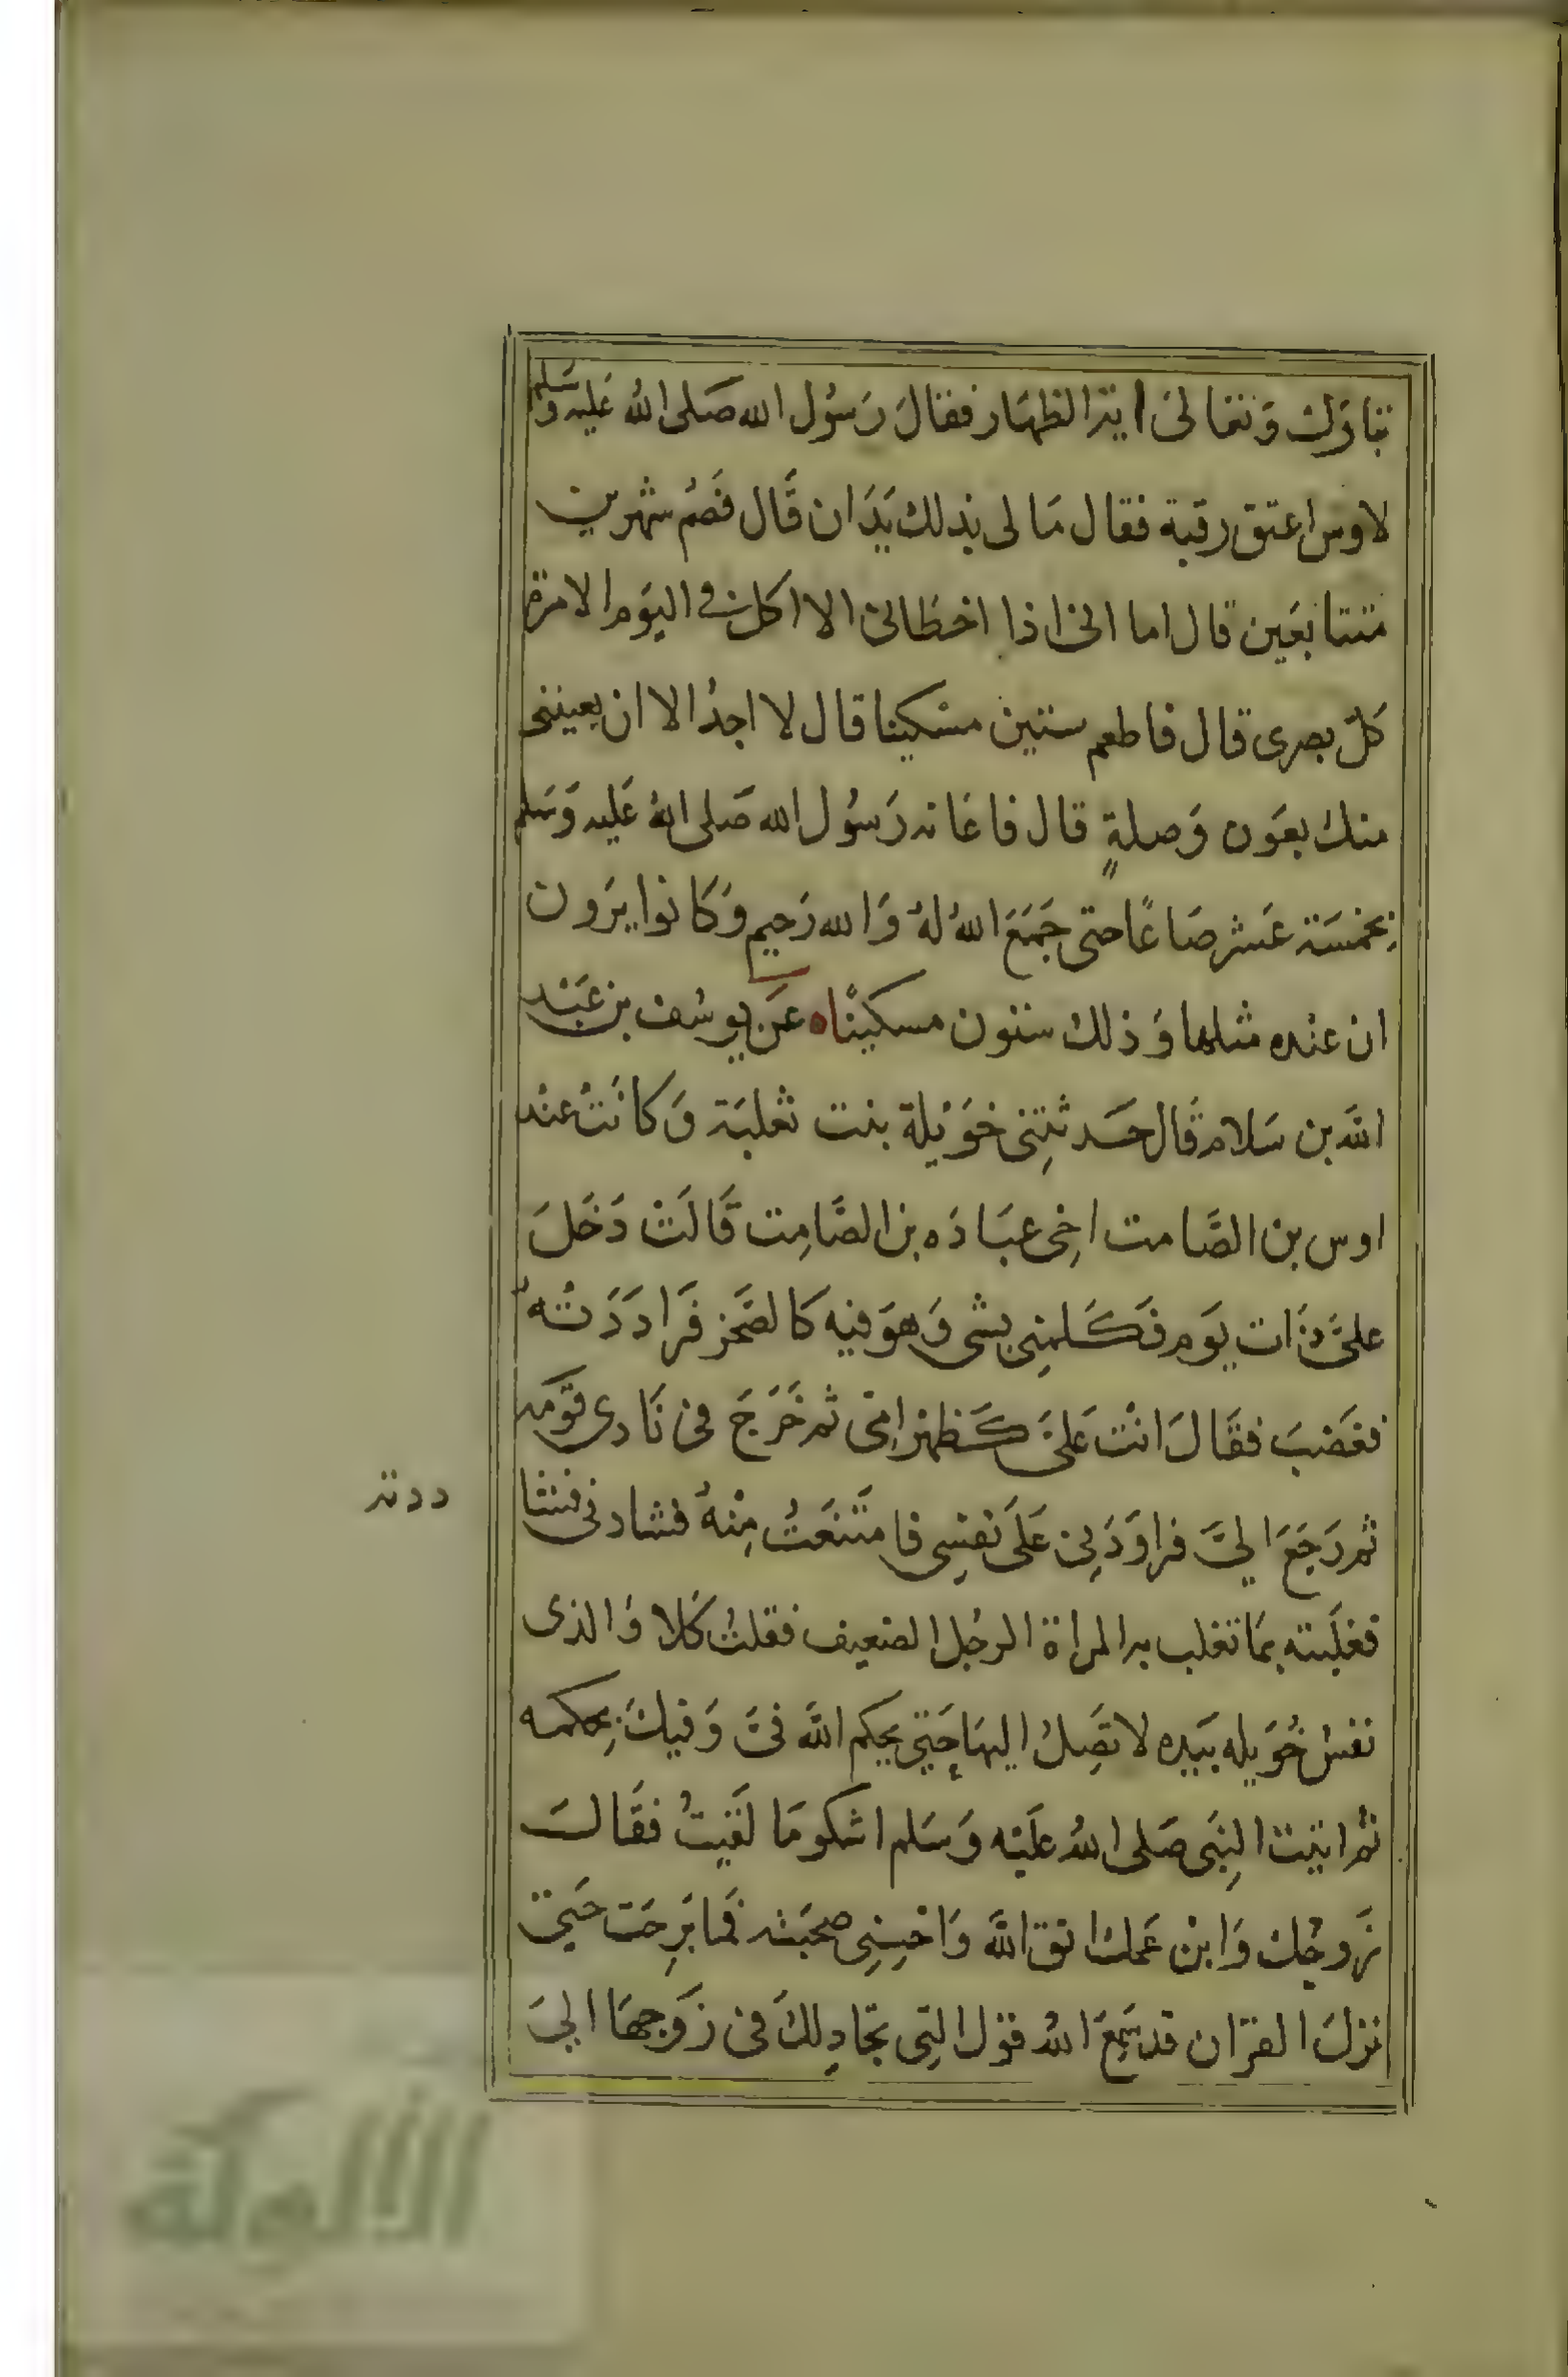 تبارك وَتعالى اية الظهَار فقالَ رَسُول الله صَلى اللهُ عَليه وسَلم
لاوس اعتق رقبة فقال مَا لى بذلك يَدَان قَال فَصُم شهرين
متتابعَين قال اما انى اذا اخطَانى الا اكل فى اليَوم الا مرة
كَلّ بصرى قال فاطعم ستين مسكينا قال لا اجدُ الا ان يعيننى
منك بعَون وَصلةٍ قال فاعَانه رَسُول الله صَلى اللهُ عَليه وَسَلم
بخمسَة عَشر صَاعًا حتى جَمَعَ اللهُ لهُ وَالله رَحيم وَكَانوا يرَون
ان عنْده مثلها وَذلك ستون مسكينًا ه عَن يوسُف بن عَبْد
اللَّه بن سَلام قَال حَدثتِنى خوَيْلة بنت ثعْلبَة وَكانَتْ عنْد
اوس بن الصَّامت اخِى عبَادَه بن الصَّامِت قَالَتْ دَخَلَ
علىَّ ذَات يَومٍ فَكَلمنِى بشى وَهوَ فيه كَالضَّجر فَرَادَدَتْهُ
فغَضبَ فقَالَ انْت عَلىَّ كَظهْر امِّى ثم خَرَجَ فى نَادى قوَمه
ثم رَجَعَ الىَّ فرَاوَدَنِى عَلَى نفسِى فامتَنَعَتُ مِنْهُ فشادنى فشا
ددته
فغَلَبته بمَا تغلب به المراة الرجُل الضعيف فقلتُ كَلا وَالذى
نفسُ خُوَيله بيَده لا تَصِلُ اليهَا حَتِى يحكم اللَّه فىَّ وَفيكَ بحكمه
ثم اتيْت النِبَى صَلى اللهُ عَلَيْه وَسَلم اشكو مَا لَقيتُ فقَالَت
زَوجُك وَابْن عَمك اتق اللَّه وَاحْسِنِى صحبَته فمَا بَرِحَت حَتى
نزلَ القرْان قد سَمِعَ اللهُ قوْل التِى تجَادِلكَ فى زَوجهَا الىَ
الألوكة